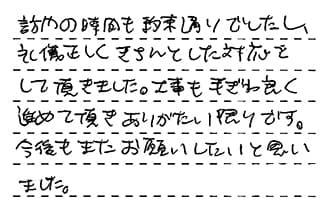 訪問の時間も約束通りでしたし、
礼儀正しくきちんとした対応を
して頂きました。工事も手ぎわ良く
進めて頂きありがたい限りです。
今後もまたお願いしたいと思い
ました。